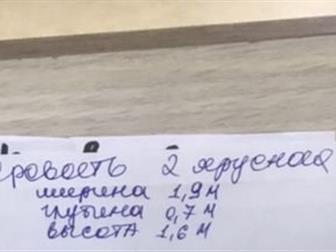 кровать 2 ярусная
ширина 1,9 м
глубина 0,7 м
высота 1,6 м